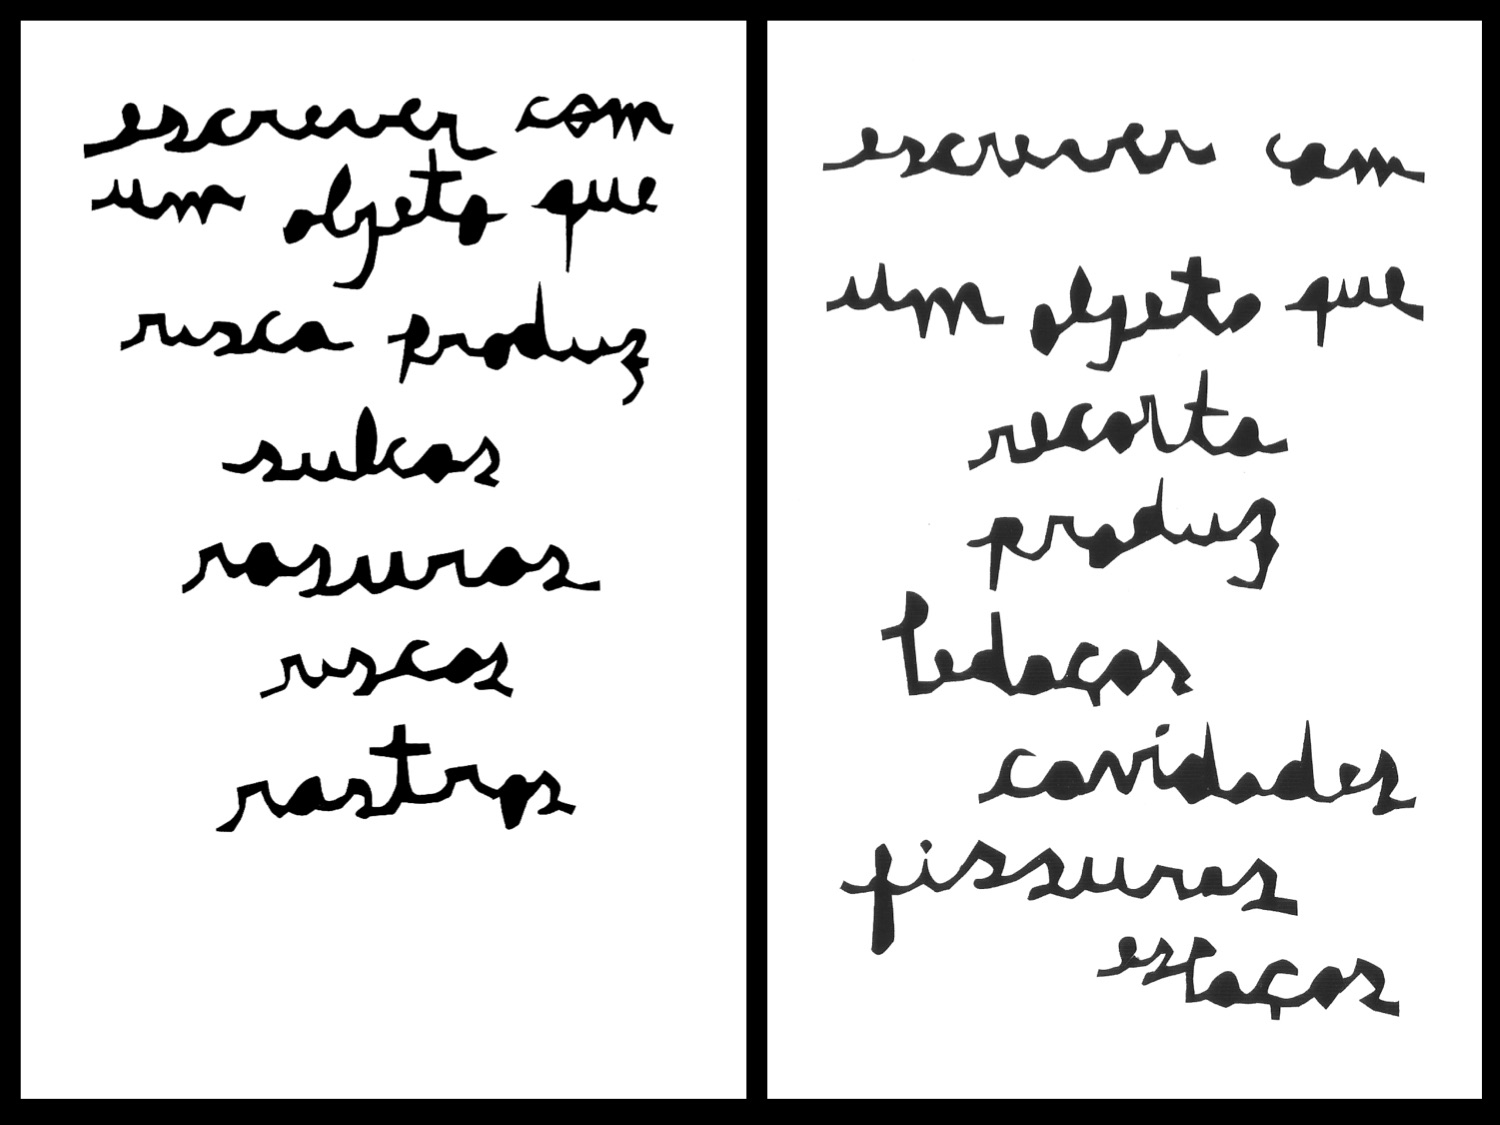 escrever com
um objeto que
risca produz
sulcos
rasuras
riscos
rastros
escrever com
um objeto que
recorta
produz
pedaços
cavidades
fissuras
espaços